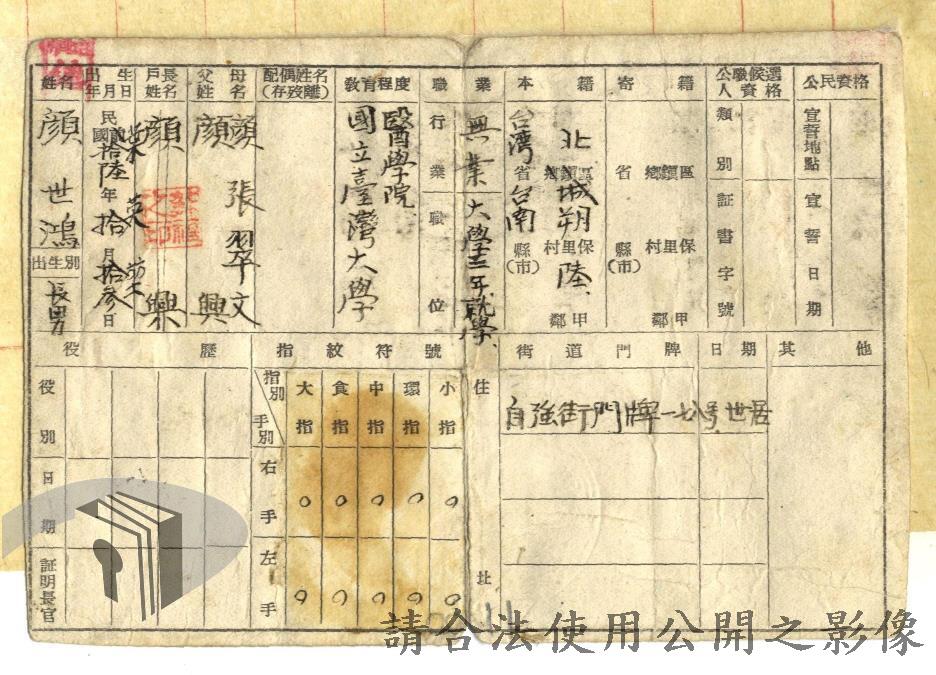 姓名
出生年月日
戶長姓名
父母姓名
配偶姓名(存歿離)
教育程度
職業
本籍
寄籍
公職候選人資格
公民資格
顏世鴻
出生別
長男
民國拾陸年拾月拾參日
顏興
顏興
顏張翠文
國立臺灣大學
醫學院
行業
職位
無業
大學三年就學
台灣省台南縣(市)
北區鎮鄉城朔保里村陸甲鄰
省縣(市)
區鎮鄉保里村甲鄰
類別
証書字號
宣誓地點
宣誓日期
役歷
指紋符號
街道門牌
日期
其他
役別
日期
証明長官
指別
手別
大指
食指
中指
環指
小指
右手
左手
住址
自強街門牌一七八号世居
請合法使用公開之影像